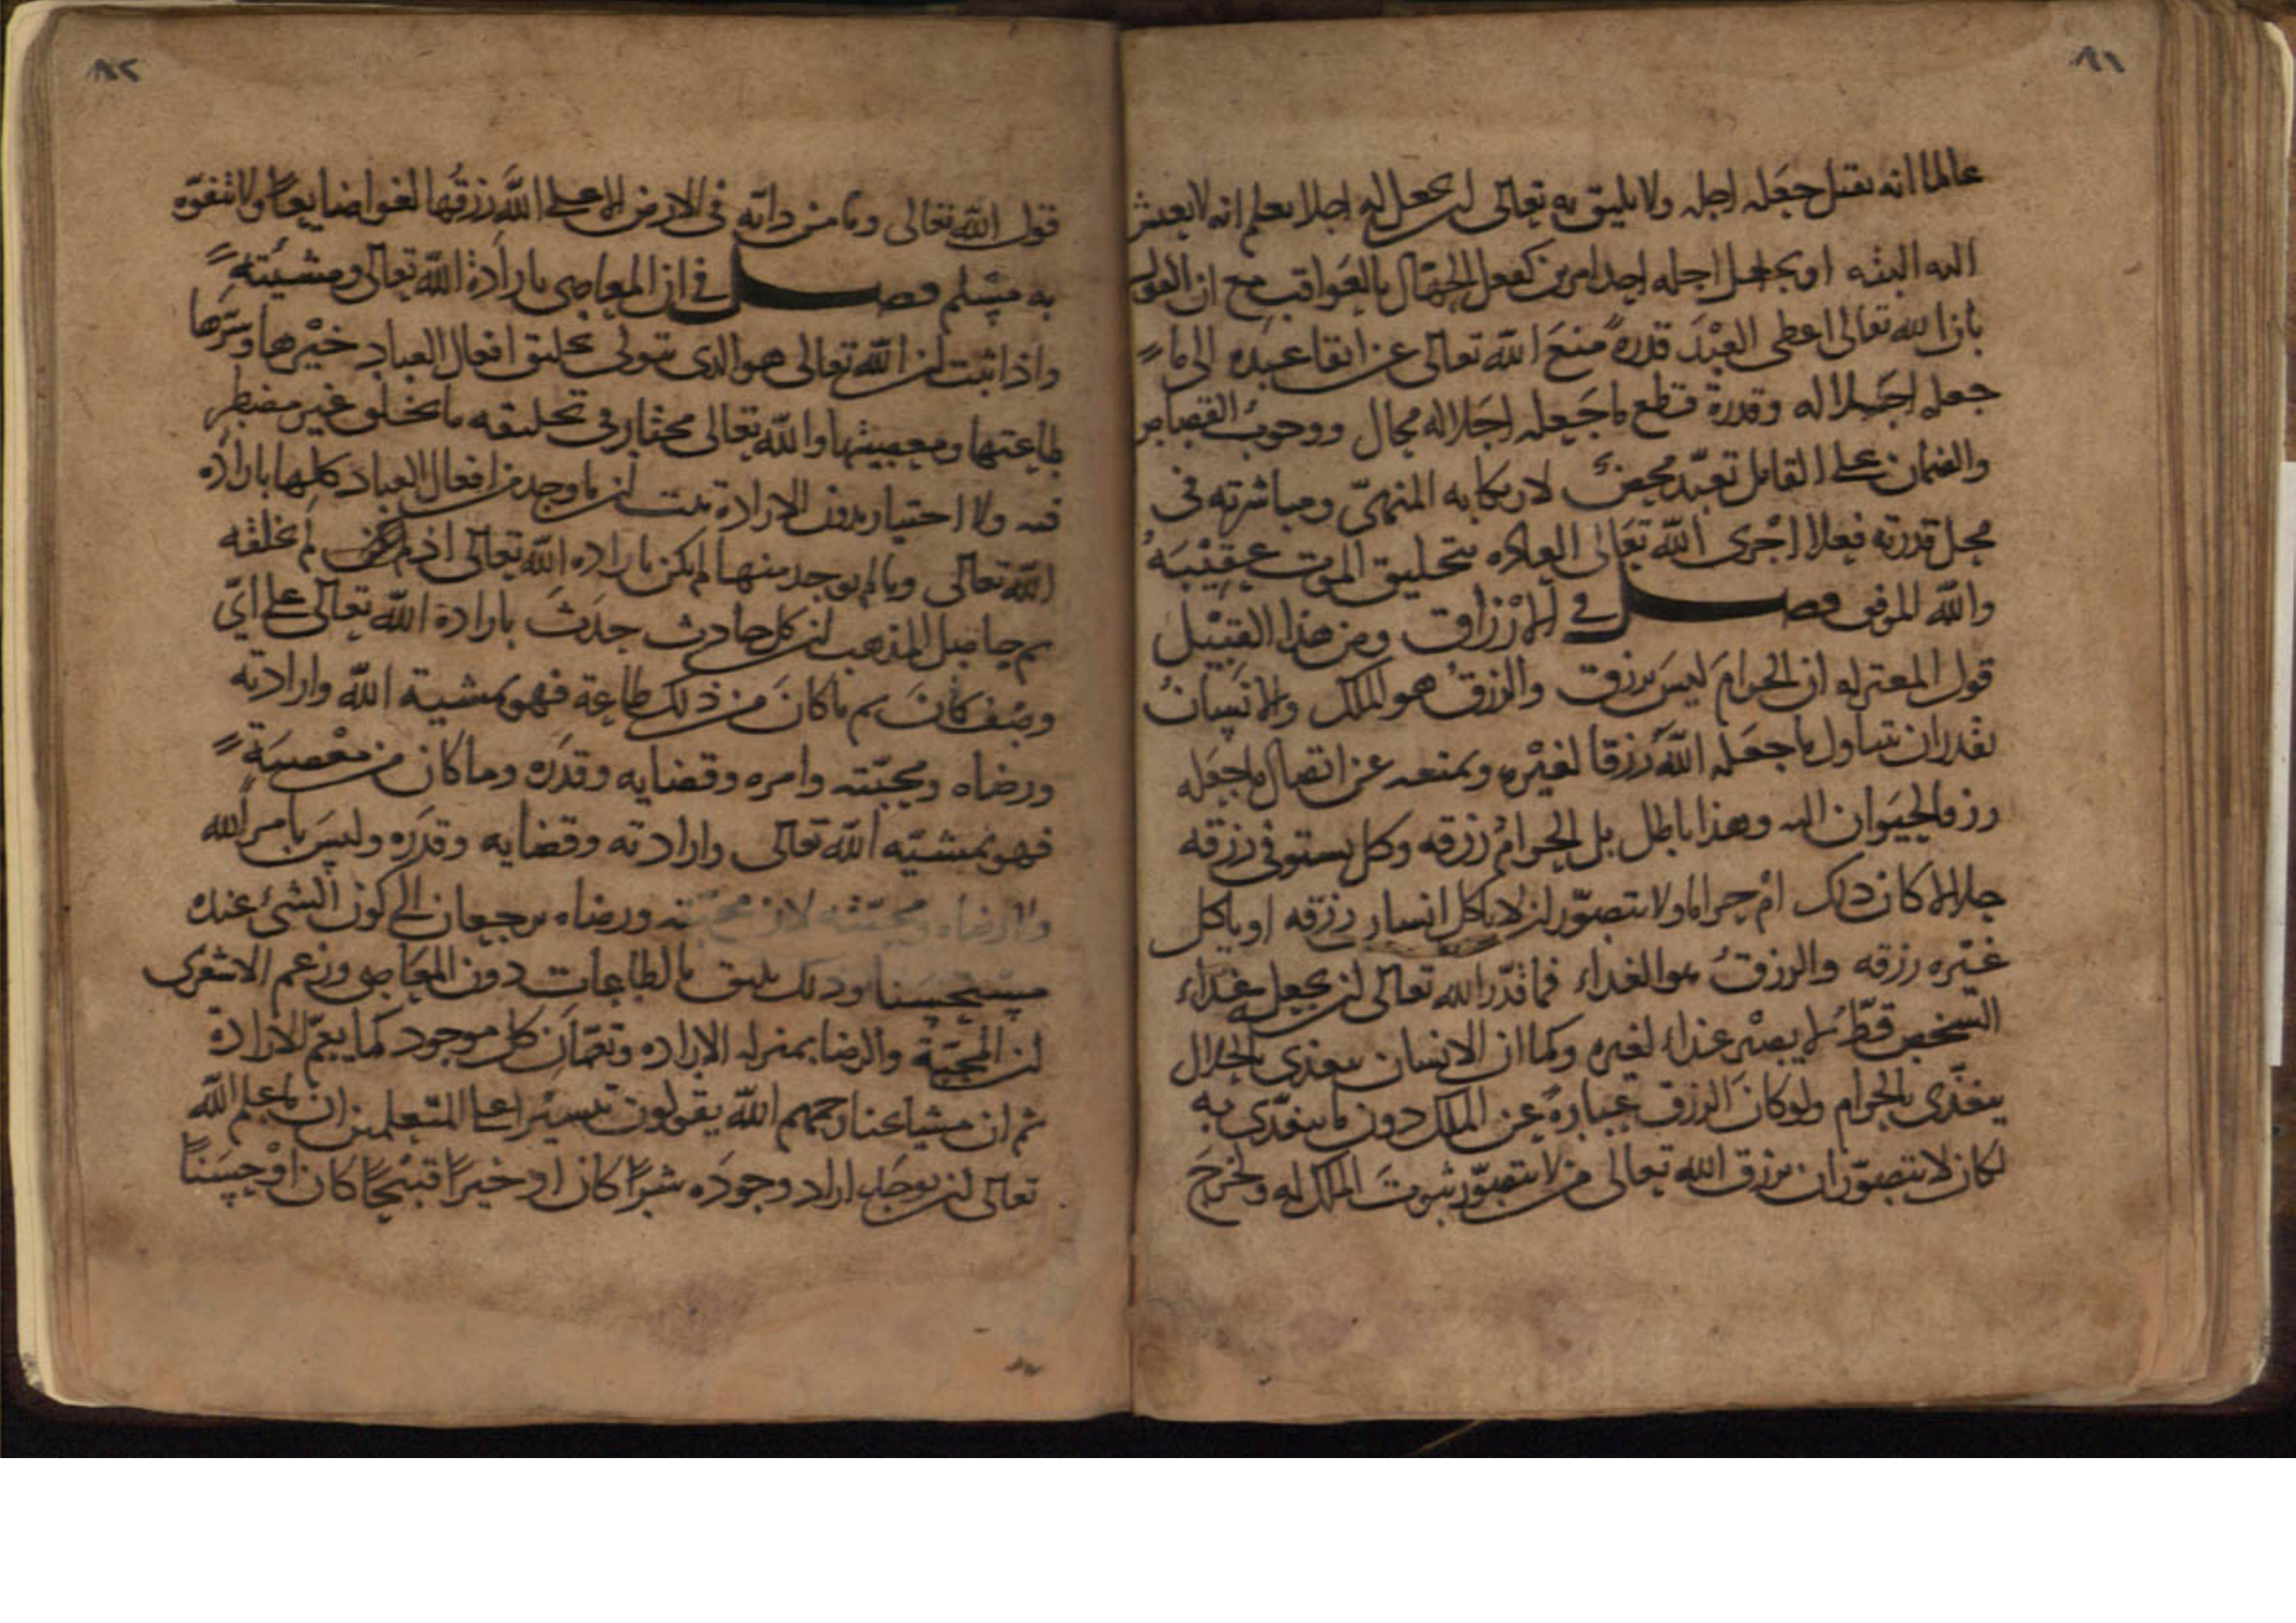 ٨١
عالما انه يقتل جعله اجله ولا يليق به تعالى ان يجعل له اجلا يعلم انه لا يعيش
اليه البتة او يجعل اجله احد امرين كفعل الجهال بالعواقب مع ان القول
بان الله تعالى اعطى العبد قدرة منع الله تعالى عن ابقا عبده الى ما
جعله اجلا له وقدرة قطع ما جعله اجلا له محال ووجوب القصاص
والضمان على القاتل تعبد محض لارتكابه المنهي ومباشرته في
محل قدرته فعلا اجرى الله تعالى العادة بتخليق الموت عقيبه
والله الموفق فصل في الارزاق ومن هذا القبيل
قول المعتزله ان الحرام ليس برزق والرزق هو الملك والانسان
يقدر ان يتناول ما جعله الله رزقا لغيره ويمنعه عن اتصال ما جعله
رزق الحيوان اليه وهذا باطل بل الحرام رزقه وكل يستوفي رزقه
حلالا كان ذلك ام حراما ولا يتصور ان لا ياكل انسان رزقه او ياكل
غيره رزقه والرزق هو الغداء فما قدر الله تعالى ان يجعله غداء
لشخص قط لا يصير غداء لغيره وكما ان الانسان يتغذى بالحلال
يتغذى بالحرام ولو كان الرزق عبارة عن الملك دون ما يتغذى به
لكان لا يتصور ان يرزق الله تعالى من لا يتصور ثبوت الملك له ولخرج
٨٢
قول الله تعالى وما من دابة في الارض الا على الله رزقها لغوا ضايعا ولا يتفوه
به مسلم فصل في ان المعاصي بارادة الله تعالى ومشيئته
واذا ثبت ان الله تعالى هو الذي يتولى تخليق افعال العباد خيرها وشرها
طاعتها ومعصيتها والله تعالى مختار في تخليقه ما يخلق غير مضطر
فيه ولا اختيار بدون الارادة ثبت ان ما وجد من افعال العباد كلها بارادة
الله تعالى وما لم يوجد منها لم يكن بارادة الله تعالى اذ لم يكن لم يخلقه
ثم حاصل المذهب ان كل حادث حدث بارادة الله تعالى على اي
وصف كان ثم ما كان من ذلك طاعة فهو بمشية الله وارادته
ورضاه ومحبته وامره وقضايه وقدره وما كان من معصية
فهو بمشيه الله تعالى وارادته وقضايه وقدره وليس بامر الله
ولا رضاه ومحبته لان محبته ورضاه يرجعان الى كون الشئ عنده
مستحسنا وذلك يليق بالطاعات دون المعاصي وزعم الاشعري
ان المحبة والرضا بمنزلة الارادة وتعمان كل موجود كما يعم الارادة
ثم ان مشايخنا رحمهم الله يقولون تيسيرا على المتعلمين ان ما علم الله
تعالى ان يوجد اراد وجوده شرا كان او خيرا قبيحا كان او حسنا